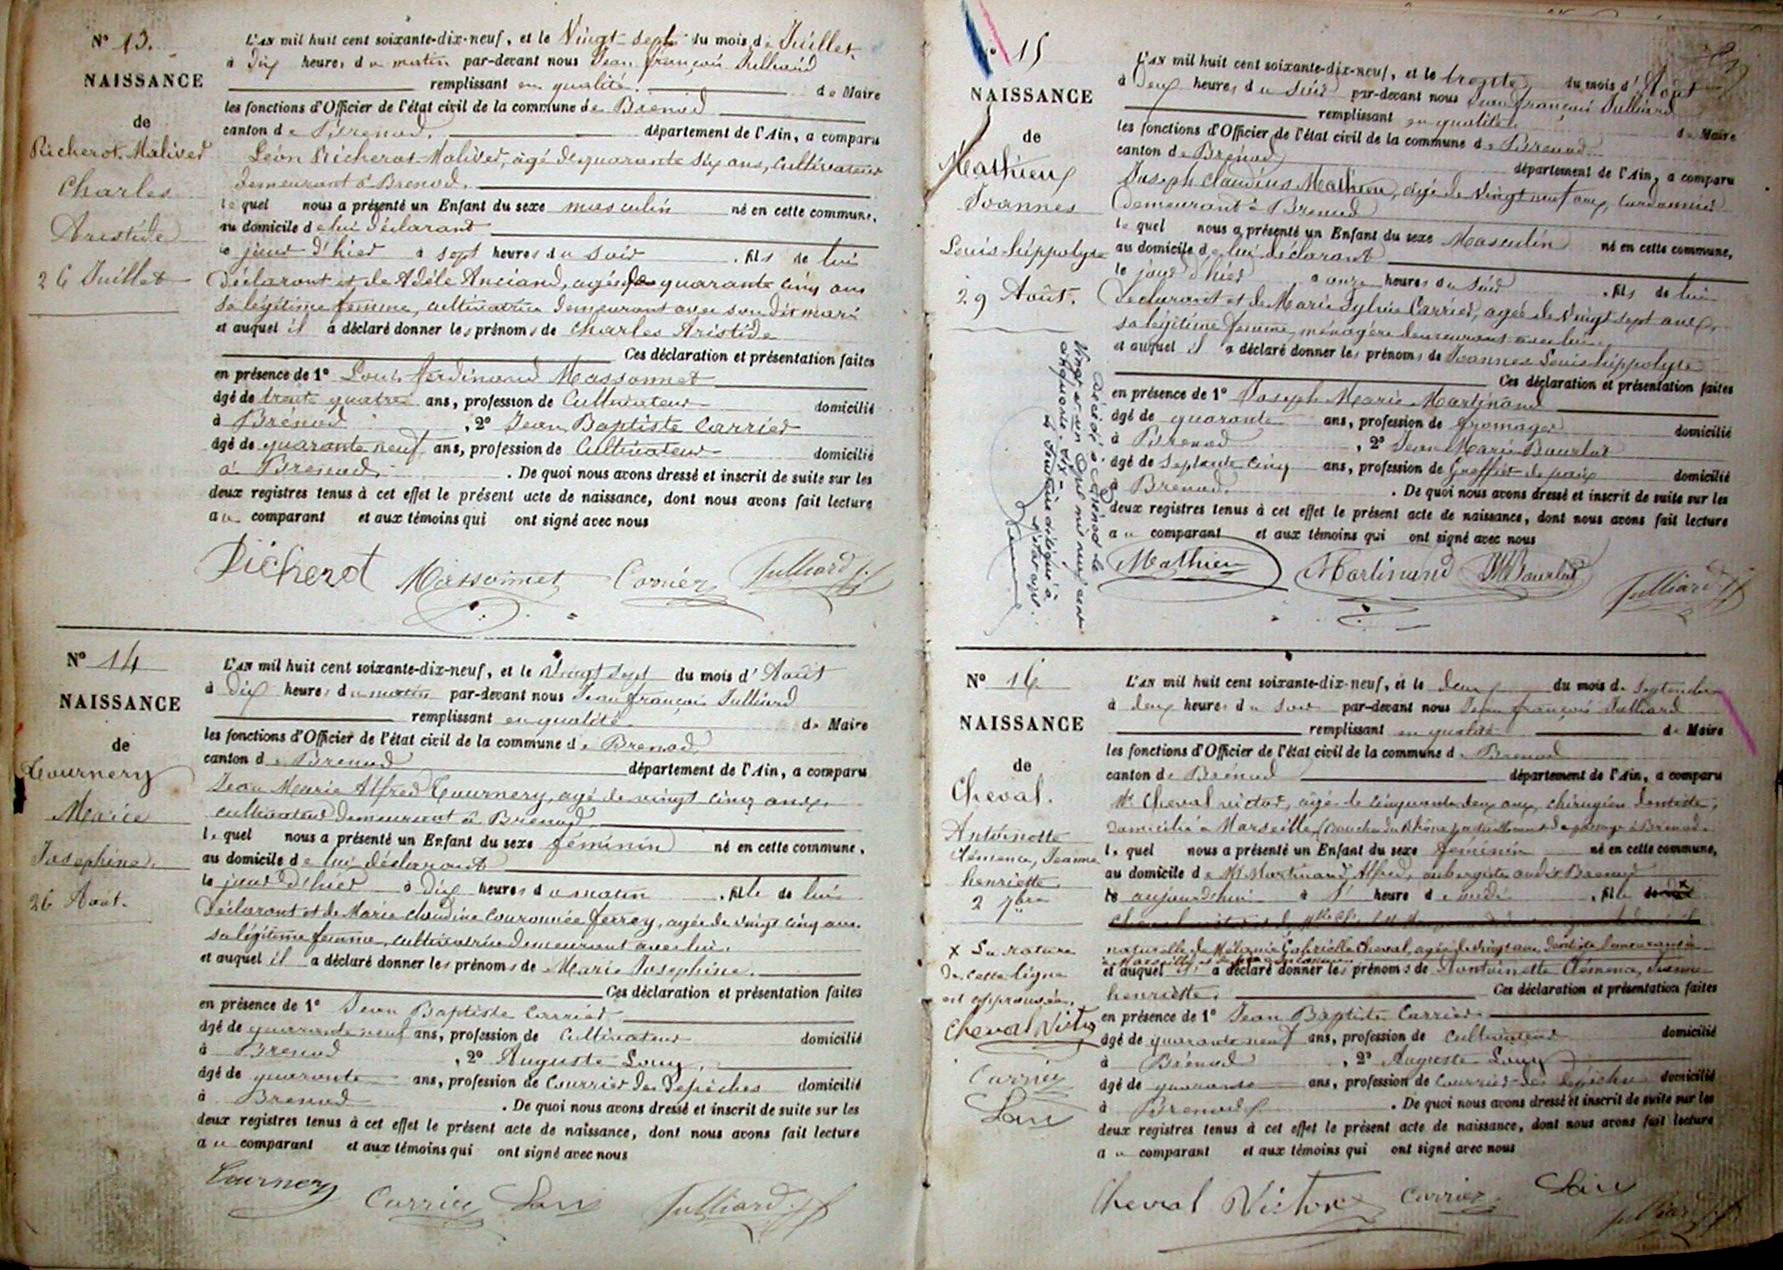 N° 13.
NAISSANCE
de
Richerot-Malivert
Charles
Aristide
26 Juillet
L'AN mil huit cent soixante-dix-neuf, et le Vingt-sept du mois de Juillet
à dix heures du matin par-devant nous Jean françois Julliard
remplissant en qualité de Maire
les fonctions d'Officier de l'état civil de la commune de Brenod
canton de Brenod, département de l'Ain, a comparu
Léon Richerot-Malivert, âgé de quarante six ans, cultivateur
demeurant à Brenod.
lequel nous a présenté un Enfant du sexe masculin né en cette commune,
au domicile de lui déclarant
le jour d'hier à sept heures du soir . fils de lui
déclarant et de Adèle Anciand, agée de quarante cinq ans
sa légitime femme, cultivatrice demeurant avec son dit mari
et auquel il a déclaré donner les prénoms de Charles Aristide
Ces déclaration et présentation faites
en présence de 1° Louis ferdinand Massonnet
âgé de trente quatre ans, profession de Cultivateur domicilié
à Brénod , 2° Jean Baptiste Carrier
âgé de quarante neuf ans, profession de Cultivateur domicilié
à Brenod. . De quoi nous avons dressé et inscrit de suite sur les
deux registres tenus à cet effet le présent acte de naissance, dont nous avons fait lecture
au comparant et aux témoins qui ont signé avec nous
Richerot Massonnet Carrier Julliard
N° 14
NAISSANCE
de
Tournery
Marie
Josephine.
26 Août.
L'AN mil huit cent soixante-dix-neuf, et le Vingt sept du mois d'Août
à dix heures du matin par-devant nous Jean françois Julliard
remplissant en qualité de Maire
les fonctions d'Officier de l'état civil de la commune de Brenod,
canton de Brenod département de l'Ain, a comparu
Jean Marie Alfred Tournery, agé de vingt cinq ans,
cultivateur demeurant à Brenod
lequel nous a présenté un Enfant du sexe féminin né en cette commune,
au domicile de lui déclarant
le jour d'hier à dix heures du matin . fille de lui
déclarant et de Marie claudine Couronnée ferrey, agée de vingt cinq ans
sa légitime femme, cultivatrice demeurant avec lui.
et auquel il a déclaré donner les prénoms de Marie Josephine.
Ces déclaration et présentation faites
en présence de 1° Jean Baptiste Carrier
âgé de quarante neuf ans, profession de Cultivateur domicilié
à Brenod , 2° Auguste
âgé de quarante ans, profession de Courrier des dépêches domicilié
à Brenod . De quoi nous avons dressé et inscrit de suite sur les
deux registres tenus à cet effet le présent acte de naissance, dont nous avons fait lecture
au comparant et aux témoins qui ont signé avec nous
Tournery Carrier Julliard
N° 15
NAISSANCE
de
Mathieu
Joannes
Louis hippolyte
29 Août.
L'AN mil huit cent soixante-dix-neuf, et le trente du mois d'Août
à deux heures du soir par-devant nous Jean françois Julliard
remplissant en qualité de Maire
les fonctions d'Officier de l'état civil de la commune de Brenod
canton de Brénod département de l'Ain, a comparu
Joseph Claudius Mathieu, agé de vingt neuf ans, cordonnier
demeurant à Brenod
lequel nous a présenté un Enfant du sexe Masculin né en cette commune,
au domicile de lui déclarant
le jour d'hier à onze heures du soir . fils de lui
déclarant et de Marie Sylvie Carrier, agée de vingt sept ans,
sa légitime femme, ménagère demeurant avec lui
et auquel il a déclaré donner les prénoms de Joannes Louis hippolyte
Ces déclaration et présentation faites
en présence de 1° Joseph Marie Martinand
âgé de quarante ans, profession de fromager domicilié
à Brenod , 2° Jean Marie Bourlot
âgé de septante cinq ans, profession de Greffier de paix domicilié
à Brenod. . De quoi nous avons dressé et inscrit de suite sur les
deux registres tenus à cet effet le présent acte de naissance, dont nous avons fait lecture
au comparant et aux témoins qui ont signé avec nous
Décédé à Brénod le
vingt et un mil neuf cent
cinquante-six
Mathieu Martinand Bourlot Julliard
N° 16
NAISSANCE
de
Cheval.
Antoinette
Clémence, Jeanne
henriette.
2 7bre
x La rature
de cette ligne
est approuvée.
Cheval Victor
Carrier
L'AN mil huit cent soixante-dix-neuf, et le deux du mois de Septembre
à deux heures du soir par-devant nous Jean françois Julliard
remplissant en qualité de Maire
les fonctions d'Officier de l'état civil de la commune de Brenod
canton de Brénod département de l'Ain, a comparu
Mr Cheval victor, agé de cinquante deux ans, chirugien dentiste,
domicilié à Marseille, (Bouches du Rhône) actuellement de passage à Brénod.
lequel nous a présenté un Enfant du sexe féminin né en cette commune,
au domicile de Mr Martinand Alfred, aubergiste audit Brenod
le aujourd'hui à 1 heure de midi . fille de
naturelle de Mélanie Gabrielle Cheval, agée de vingt ans, dentiste demeurant à
Marseille
et auquel il a déclaré donner les prénoms de Antoinette Clémence, Jeanne
henriette. Ces déclaration et présentation faites
en présence de 1° Jean Baptiste Carrier
âgé de quarante neuf ans, profession de cultivateur domicilié
à Brénod , 2° Auguste
âgé de quarante ans, profession de Courrier des dépêches domicilié
à Brenod . De quoi nous avons dressé et inscrit de suite sur les
deux registres tenus à cet effet le présent acte de naissance, dont nous avons fait lecture
au comparant et aux témoins qui ont signé avec nous
Cheval Victor Carrier Julliard